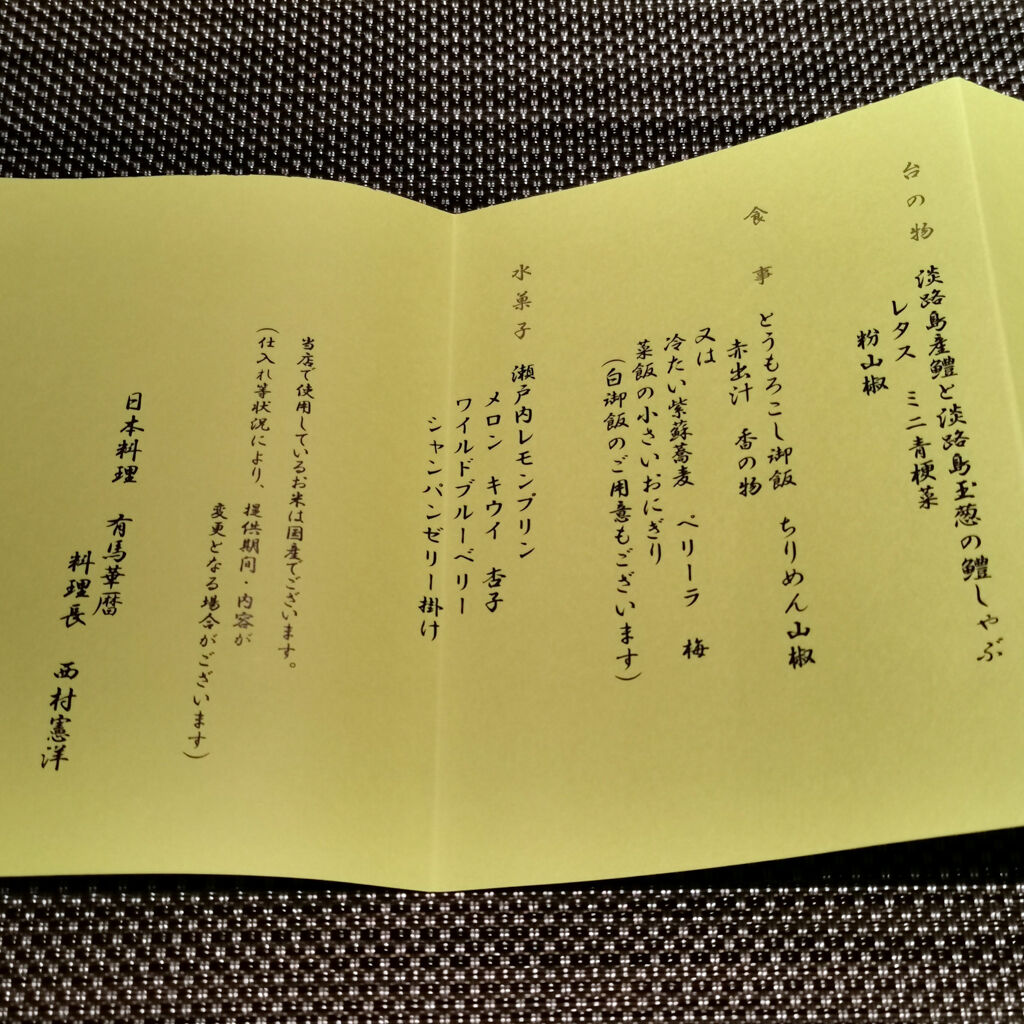 台の物 淡路島産鱧と淡路島玉葱の鱧しゃぶ
レタス ミニ青梗菜
粉山椒
食事 とうもろこし御飯 ちりめん山椒
赤出汁 香の物
又は
冷たい紫蘇蕎麦 ペリーラ 梅
菜飯の小さいおにぎり
(白御飯のご用意もございます)
水菓子 瀬戸内レモンプリン
メロン キウイ 杏子
ワイルドブルーベリー
シャンパンゼリー掛け
当店で使用しているお米は国産でございます。
(仕入れ等状況により、提供期間・内容が
変更となる場合がございます)
日本料理 有馬華暦
料理長 西村憲洋